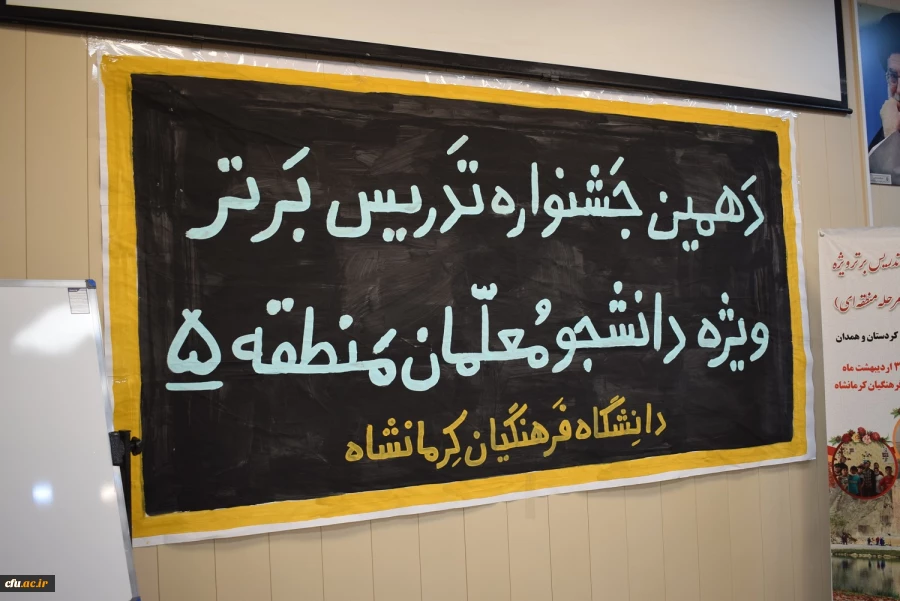 دَهمین جَشنواره تَدریس بَرتر
ویژه دانشجو مُعلّمان مَنطقه ۵
دانِشگاه فَرهنگیان کِرمانشاه
تدریس برتر ویژه
مرحله منطقه ای)
کردستان و همدان
اردیبهشت ماه
فرهنگیان کرمانشاه
cfu.ac.ir